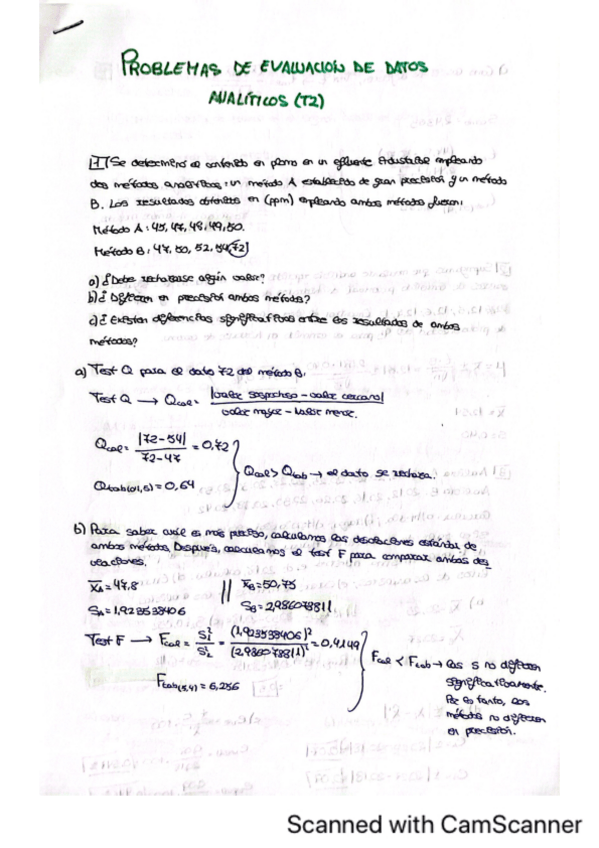 PROBLEMAS DE EVALUACIÓN DE DATOS
ANALÍTICOS (T2)
1 Se determinó el contenido en plomo en un efluente industrial empleando
dos métodos analíticos: un método A establecido de gran precisión y un método
B. Los resultados obtenidos en (ppm) empleando ambos métodos fueron:
Método A: 45, 47, 48, 49, 50.
Método B: 47, 50, 52, 54, 72
a) ¿Debe rechazarse algún valor?
b) ¿Difieren en precisión ambos métodos?
c) ¿Existen diferencias significativas entre los resultados de ambos
métodos?
a) Test Q para el dato 72 del método B.
Test Q → Qcal = |valor sospechoso - valor cercano| / valor mayor - valor menor
Qcal = |72-54| / 72-47 = 0,72
Qtab(0,1,5) = 0,64
Qcal > Qtab → el dato se rechaza.
b) Para saber cuál es más preciso, calculamos las desviaciones estándar de
ambos métodos. Después, calculamos el test F para comparar ambas des
viaciones.
X̄A = 47,8 || X̄B = 50,75
SA = 1,923538406 SB = 2,986078811
Test F → Fcal = S₁² / S₂² = (1,923538406)² / (2,986078811)² = 0,4149
Ftab(3,4) = 6,256
Fcal < Ftab → las s no difieren
significativamente.
Por lo tanto, los
métodos no difieren
en precisión.
Scanned with CamScanner